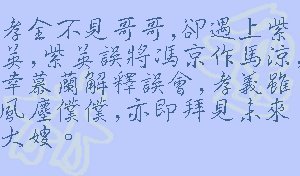 孝金不見哥哥,卻遇上紫
英,紫英誤將馮京作馬涼,
幸慕蘭解釋誤會,孝義雖
風塵僕僕,亦即拜見未來
大嫂。